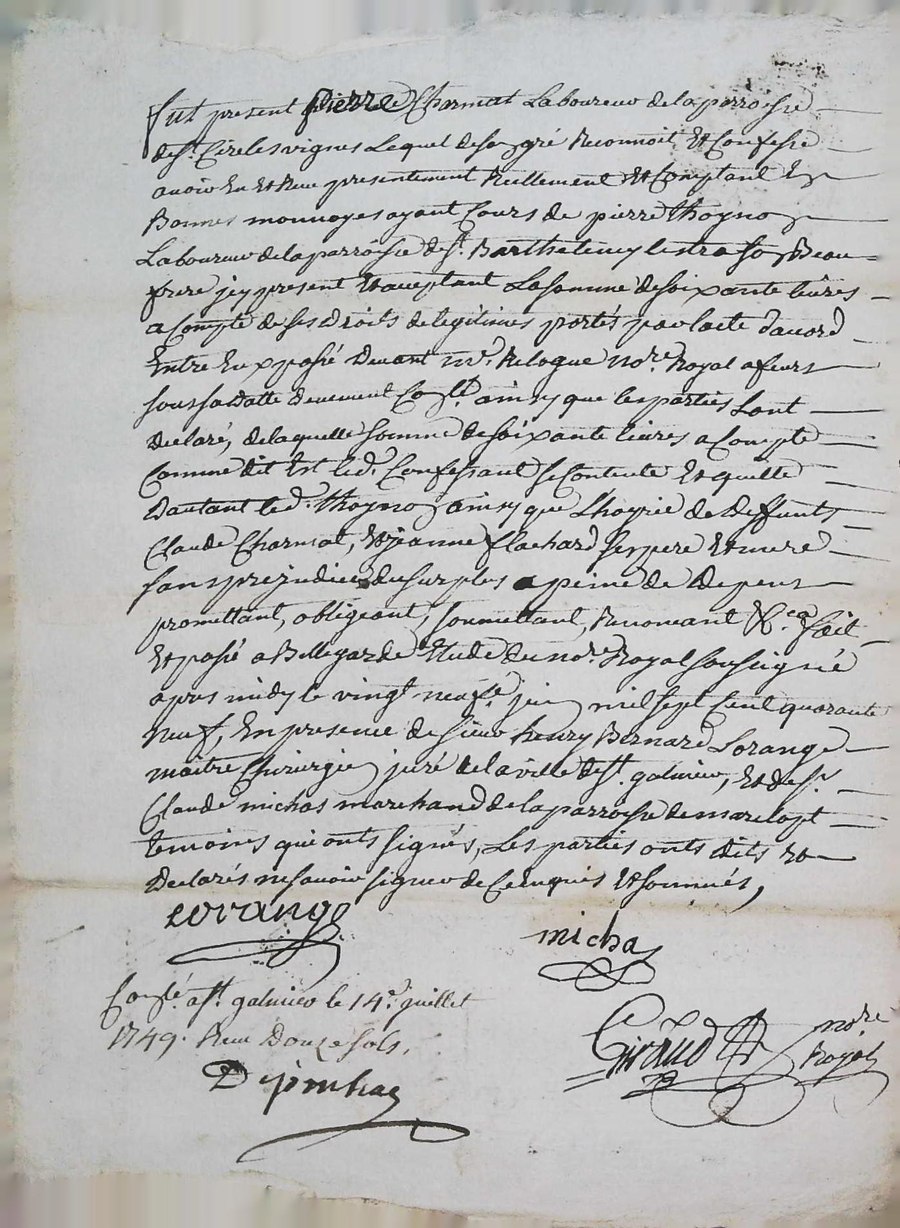 fut present pierre Charmat Laboureur de la parroisse
de st. Cire les vignes Lequel de son gré Reconnoit Et Confesse
avoir Eu et Receu presentement Reellement Et Comptant En
Bonnes monnoyes ayant Cours de pierre thoyno
Laboureur de la parroisse de st. Barthelemy lestra son Beau
frere jcy present Et aceptant La somme de soixante livres
a Compte de ses Droits de legitimes portés par lacte dacord
Entre Eux passé devant me. Relogue nore. Royal a feurs
sous sa datte deuement Conlé. ainsy que les parties Lont
declaré, de laquelle somme de soixante livres a Compte
Comme dit Est led. Confessant se Contente Et quitte
Dautant led. thoyno ainsy que Lhoyrie de Deffunts
Claude Charmat, Et jeanne flachard ses pere Et mere
sans prejudice du surplus a peine de Depens
promettant, obligeant, soumettant, Renonceant &c.a fait
Et passé a Bellegarde Etude du nore. Royal soussigné
apres midy le vingt neufe. juin mil sept Cent quarante
neuf, En presence de sieur henry Bernard Lorange
maitre Chirurgien juré de la ville de st. galmier, Et de sr.
Claude michas marchand de la parroisse de marclopt
temoins qui onts signés, Les parties onts dits Et
Declarés ne savoir signer de Ce enquis Et sommés,
Lorange
michas
Conlé a st. galmier le 14e. juillet
1749. Receu Douze sols.
Giraud nore
Royal